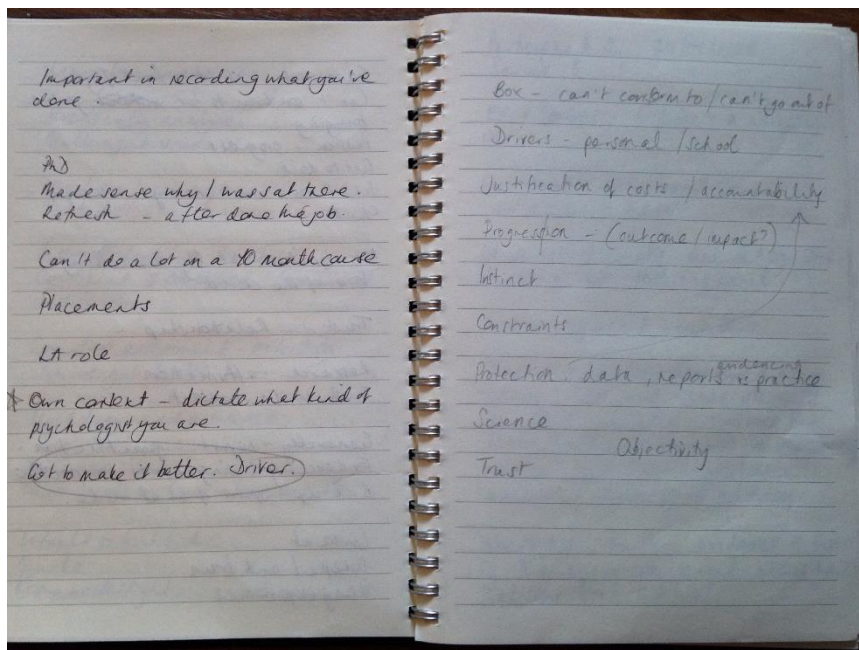 Important in recording what you've
done.
PhD
Made sense why I was sat there.
Refresh - after done the job.
Can't do a lot on a 10 month course
Placements
LA role
* Own context - dictate what kind of
psychologist you are.
Got to make it better. Driver.
Box - can't conform to / can't go out of
Drivers - personal / school
Justification of costs / accountability
Progression - (outcome / impact?)
Instinct
Constraints
evidencing
Protection, data, reports vs practice
Science
Objectivity
Trust